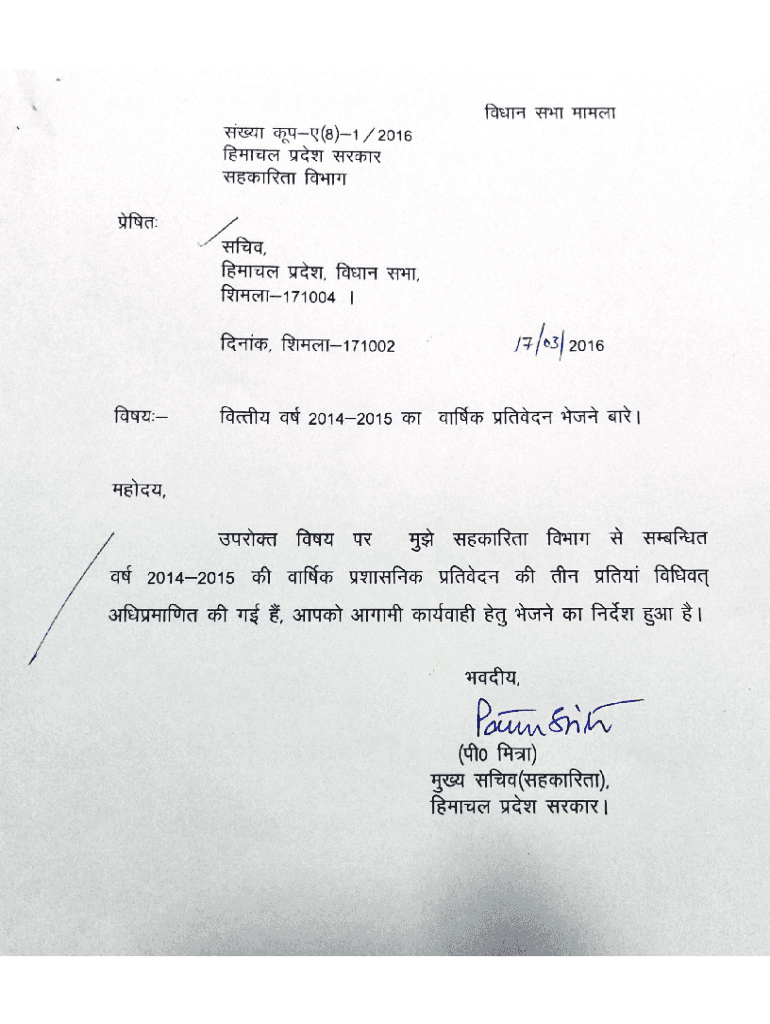 विधान सभा मामला
संख्या कूप–ए(8)–1/2016
हिमाचल प्रदेश सरकार
सहकारिता विभाग
प्रेषितः
सचिव,
हिमाचल प्रदेश, विधान सभा,
शिमला–171004 ।
दिनांक, शिमला–171002 17/03/2016
विषयः– वित्तीय वर्ष 2014–2015 का वार्षिक प्रतिवेदन भेजने बारे।
महोदय,
उपरोक्त विषय पर मुझे सहकारिता विभाग से सम्बन्धित
वर्ष 2014–2015 की वार्षिक प्रशासनिक प्रतिवेदन की तीन प्रतियां विधिवत्
अधिप्रमाणित की गई हैं, आपको आगामी कार्यवाही हेतु भेजने का निर्देश हुआ है।
भवदीय,
(पी0 मित्रा)
मुख्य सचिव(सहकारिता),
हिमाचल प्रदेश सरकार।